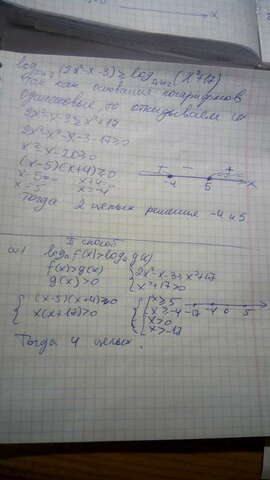 (2x²-x-3) ≥ log (x²+17)
Так как основания логарифмов
одинаковые, то откидываем
2x²-x-3 ≥ x²+17
2x²-x²-x-3-17≥0
x²-x-20≥0
(x-5)(x+4)≥0
x-5= x+4=
x=5 x=-4
+ - +
-4 5 x
Тогда 2 целых решения -4 и 5
II способ
logₐf(x)>logₐg(x)
f(x)>g(x)
g(x)>0
2x²-x-3≥x²+17
x²+17≥0
(x-5)(x+4)≥0
x(x+17)≥0
x≥5
x≥-4
x>0
x>-17
-17 -4 0 5
Тогда 4 целых.